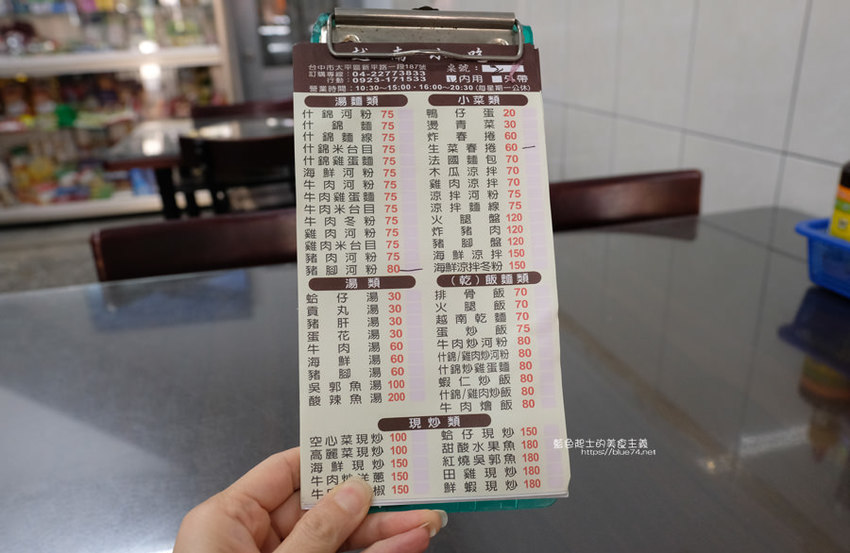 越南小吃
台中市太平區新平路一段187號
訂購專線：04-22773833
行動：0923-171533
桌號：
內用 外帶
營業時間：10:30~15:00・16:00~20:30 (每星期一公休)
湯麵類
什錦河粉 75
什錦麵 75
什錦麵線 75
什錦米台目 75
什錦雞蛋麵 75
海鮮河粉 75
牛肉河粉 75
牛肉雞蛋麵 75
牛肉米台目 75
牛肉冬粉 75
雞肉河粉 75
雞肉米台目 75
豬肉河粉 75
豬腳河粉 80
湯類
蛤仔湯 30
貢丸湯 30
豬肝湯 30
蛋花湯 30
牛肉湯 60
海鮮湯 60
豬腳湯 60
吳郭魚湯 100
酸辣魚湯 200
小菜類
鴨仔蛋 20
燙青菜 30
炸春捲 60
生菜春捲 60
法國麵包 70
木瓜涼拌 70
雞肉涼拌 70
涼拌河粉 75
涼拌麵線 75
火腿盤 120
炸豬肉 120
豬腳盤 120
海鮮涼拌 150
海鮮涼拌冬粉 150
(乾)飯麵類
排骨飯 70
火腿飯 70
越南乾麵 70
蛋炒飯 75
牛肉炒河粉 80
什錦/雞肉炒河粉 80
什錦炒雞蛋麵 80
蝦仁炒飯 80
什錦/雞肉炒飯 80
牛肉燴飯 80
現炒類
空心菜現炒 100
高麗菜現炒 100
海鮮現炒 150
牛肉炒洋蔥 150
椒 150
蛤仔現炒 150
甜酸水果魚 180
紅燒吳郭魚 180
田雞現炒 180
鮮蝦現炒 180
藍色起士的美食主義
https://blue74.net